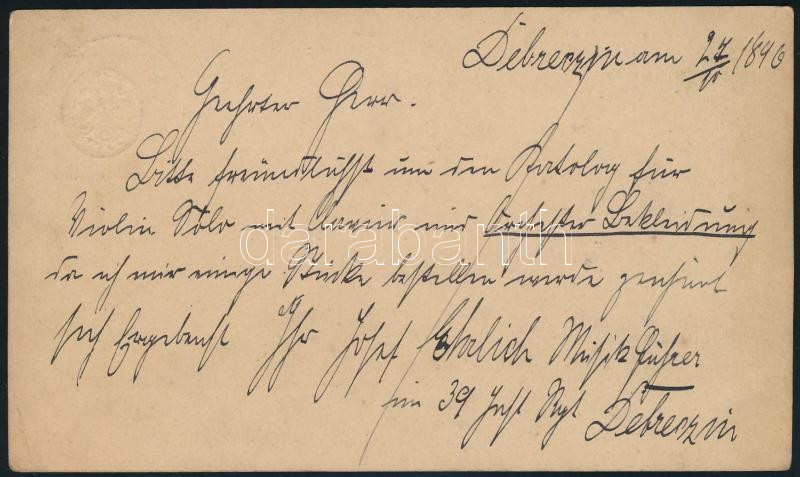 Debreczin am 27/10 1896
Geehrter Herr.
Bitte freundlichst um den Katalog für
Violin Solo mit Clavier und Orchester Bekleidung
da ich mir einige Stücke bestellen werde zeichnet
sich Ergebenst Ihr Josef Ehrlich Musikführer
im 39 Inft Rgt
Debreczin
darabanth